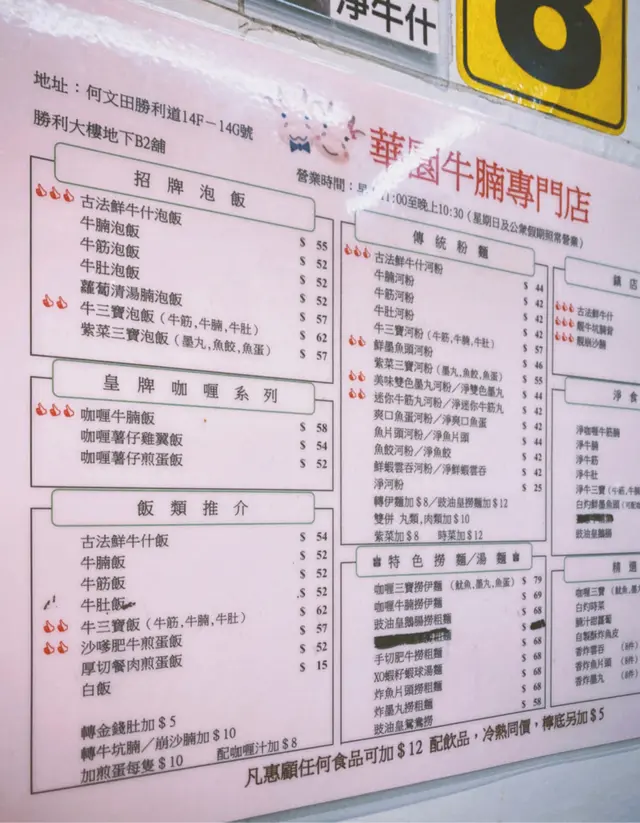 淨牛什
8
地址：何文田勝利道14F－14G號
勝利大樓地下B2舖
華園牛腩專門店
營業時間：11:00至晚上10:30（星期日及公眾假期照常營業）
招牌泡飯
古法鮮牛什泡飯 $ 55
牛腩泡飯 $ 52
牛筋泡飯 $ 52
牛肚泡飯 $ 52
蘿蔔清湯腩泡飯 $ 52
牛三寶泡飯（牛筋,牛腩,牛肚） $ 57
紫菜三寶泡飯（墨丸,魚餃,魚蛋） $ 62
$ 57
皇牌咖喱系列
咖喱牛腩飯 $ 58
咖喱薯仔雞翼飯 $ 54
咖喱薯仔煎蛋飯 $ 52
飯類推介
古法鮮牛什飯 $ 54
牛腩飯 $ 52
牛筋飯 $ 52
牛肚飯 $ 52
牛三寶飯（牛筋,牛腩,牛肚） $ 62
沙嗲肥牛煎蛋飯 $ 57
厚切餐肉煎蛋飯 $ 52
白飯 $ 15
轉金錢肚加 $ 5
轉牛坑腩／崩沙腩加 $ 10
加煎蛋每隻 $ 10 配咖喱汁加 $ 8
傳統粉麵
古法鮮牛什河粉 $ 44
牛腩河粉 $ 42
牛筋河粉 $ 42
牛肚河粉 $ 42
牛三寶河粉（牛筋,牛腩,牛肚） $ 57
鮮墨魚頭河粉 $ 46
紫菜三寶河粉（墨丸,魚餃,魚蛋） $ 55
美味雙色墨丸河粉／淨雙色墨丸 $ 44
迷你牛筋丸河粉／淨迷你牛筋丸 $ 42
爽口魚蛋河粉／淨爽口魚蛋 $ 42
魚片頭河粉／淨魚片頭 $ 44
魚餃河粉／淨魚餃 $ 42
鮮蝦雲吞河粉／淨鮮蝦雲吞 $ 42
淨河粉 $ 25
轉伊麵加 $ 8／豉油皇撈麵加 $ 12
雙併 丸類,肉類加 $ 10
紫菜加 $ 8 時菜加 $ 12
特色撈麵/湯麵
咖喱三寶撈伊麵（魷魚,墨丸,魚蛋） $ 79
咖喱牛腩撈伊麵 $ 69
豉油皇鵝腸撈粗麵 $ 68
手切肥牛撈粗麵 $ 68
XO蝦籽蝦球湯麵 $ 68
炸魚片頭撈粗麵 $ 68
炸墨丸撈粗麵 $ 68
豉油皇鴛鴦撈 $ 58
鎮店
古法鮮牛什
靚牛坑腩
靚崩沙腩
淨食
淨咖喱牛筋腩
淨牛腩
淨牛筋
淨牛肚
淨牛三寶（牛筋,牛腩
白灼鮮墨魚頭
豉油皇鵝腸
精選
咖喱三寶（魷魚,墨丸
白灼時菜
腩汁甜蘿蔔
自製酥炸魚皮
香炸雲吞（8件）
香炸魚片頭（8件）
香炸墨丸（6件）
凡惠顧任何食品可加 $ 12 配飲品，冷熱同價，檸底另加 $ 5